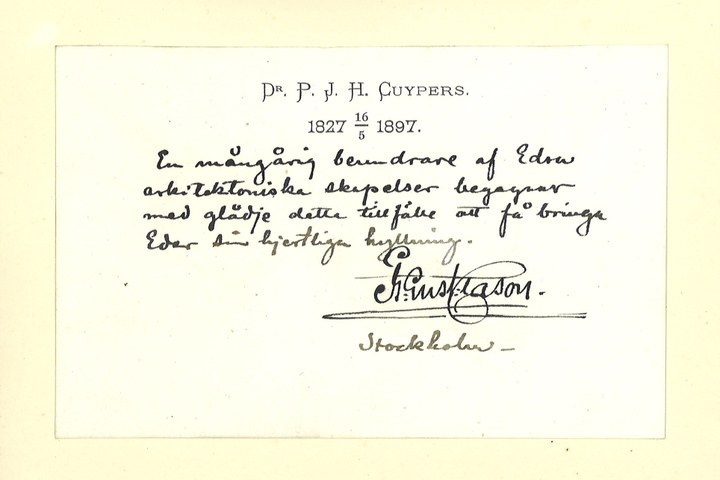 Dr. P. J. H. Cuypers.
1827 16/5 1897.
En mångårig beundrare af Edra
arkitektoniska skapelser begagnar
med glädje detta tillfälle att få bringa
Eder sin hjertliga hyllning.
Stockholm –